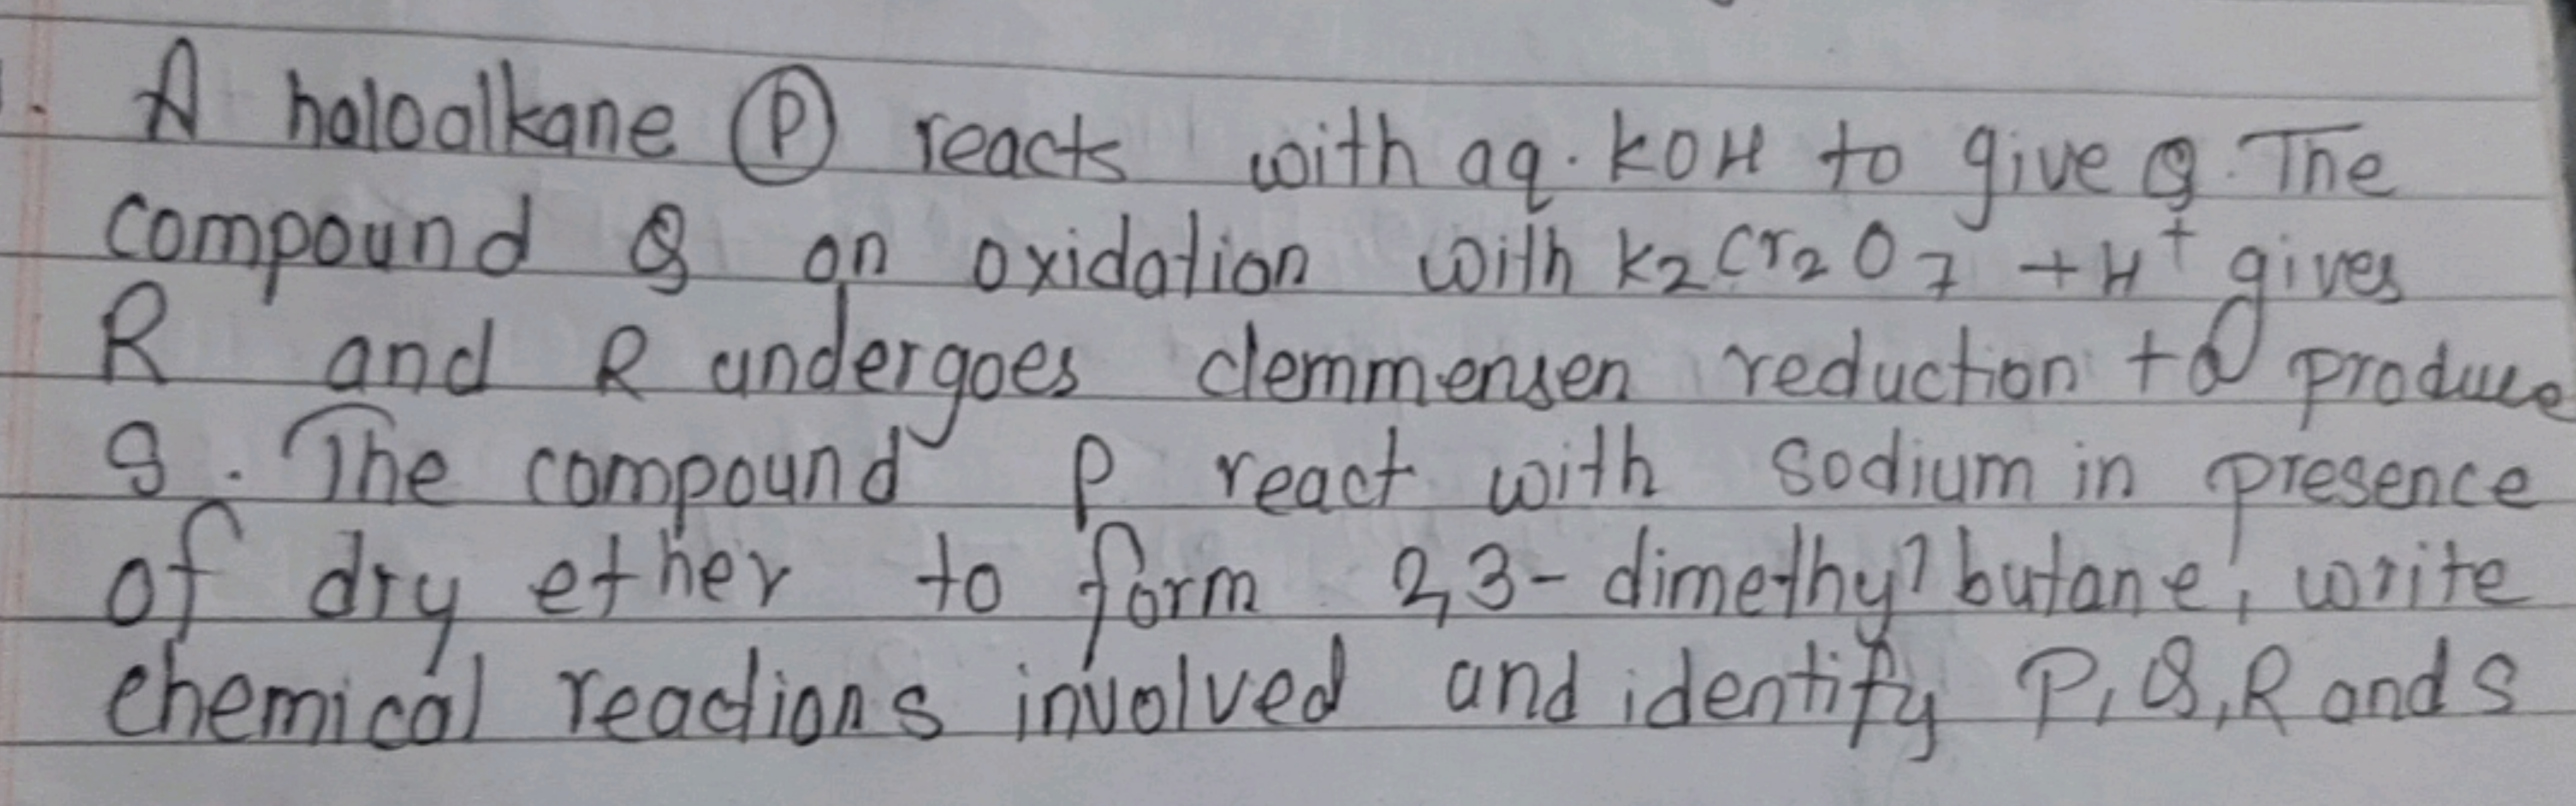 A haloalkane P reacts with aq. KOH to give Q. The
compound Q on oxidation with K2Cr2O7 + H+ gives
R and R undergoes clemmensen reduction to produce
S. The compound P react with sodium in presence
of dry ether to form 2,3-dimethyl butane, write
chemical reactions involved and identify P, Q, R and S